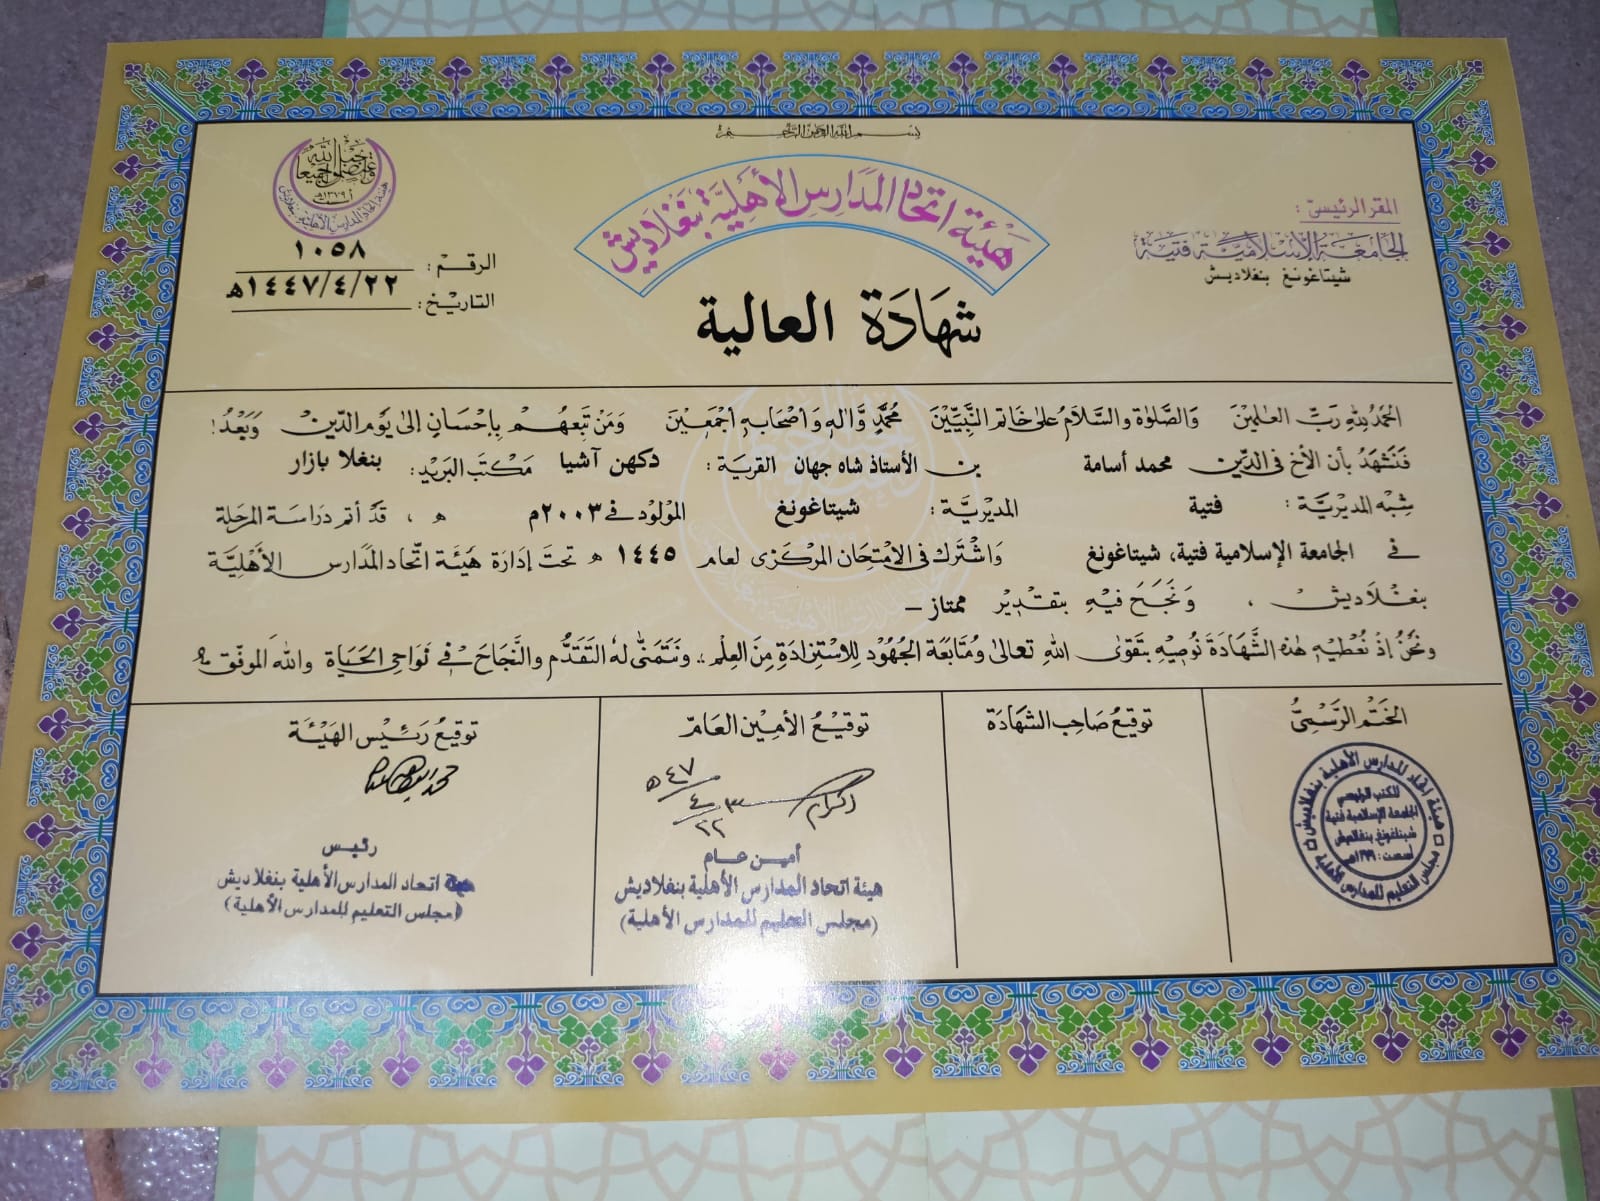 بسم الله الرحمن الرحيم
هيئة اتحاد المدارس الأهلية بنغلاديش
المقر الرئيسي :
الجامعة الإسلامية فتية
شيتاغونغ بنغلاديش
هيئة اتحاد المدارس الأهلية بنغلاديش
الرقم : ١٠٥٨
التاريخ : ١٤٤٧/٤/٢٢ه
شهَادَة العالية
الحَمدُ لِلّهِ رَبِّ العٰلمِيْنَ وَالصَّلوٰة والسَّلَامُ عَلىٰ خَاتم النَّبِيِّيْنَ مُحَمَّدٍ وَّاٰلِهٖ وَأصْحَابِهٖ أجْمَعِيْنَ وَمَنْ تَبِعَهُمْ بِإحْسَانٍ إلىٰ يَوم الدِّيْنِ وَبَعْدُ!
فَنَشْهَدُ بأن الأخ فِى الدِّيْنِ محمد أسامة بن الأستاذ شاه جهان القرية : دكهن آشيا مَكتَب البَرِيْد : بنغلا بازار
شِبْه المديريَّة : فتية المديريَّة : شيتاغونغ المَولُود فى ٢٠٠٣م ه ، قَد أتم دِرَاسَة المَرحَلة
فى الجامعة الإسلامية فتية، شيتاغونغ وَاشْتَرَك فى الامْتِحَان المركزى لعَام ١٤٤٥ ه تحتَ إدَارَة هَيئَة اتّحَاد المَدَارس الأَهْليَّة
بنغلاديش ، وَنَجَحَ فيْهِ بتَقْدِيْر ممتاز –
وَنَحْنُ إذْ نُعْطِيْهِ هٰذه الشَّهَادَة نُوصِيْهِ بتَقوَى اللهِ تَعالىٰ وَمُتَابَعَة الجُهُوْد لِلاسْتِزَادَةِ مِنَ العِلْمِ ، وَنَتَمَنّٰى لهُ التَّقَدُّم والنَّجَاحَ فى نَوَاحِى الحَيَاة واللهُ الموفّق
الخَتم الرَّسْمِىُّ
توقيعُ صَاحِب الشهَادَة
تَوقيْعُ الأمِيْن العَامّ
تَوقيعُ رَئِيْس الهَيْئَة
هيئة اتحاد المدارس الأهلية بنغلاديش
المكتب الرئيسي
الجامعة الإسلامية فتية
شيتاغونغ بنغلاديش
مجلس التعليم للمدارس الأهلية
٤٧ه
٤
٢٢
أمين عام
هيئة اتحاد المدارس الأهلية بنغلاديش
(مجلس التعليم للمدارس الأهلية)
رئيس
هيئة اتحاد المدارس الأهلية بنغلاديش
(مجلس التعليم للمدارس الأهلية)